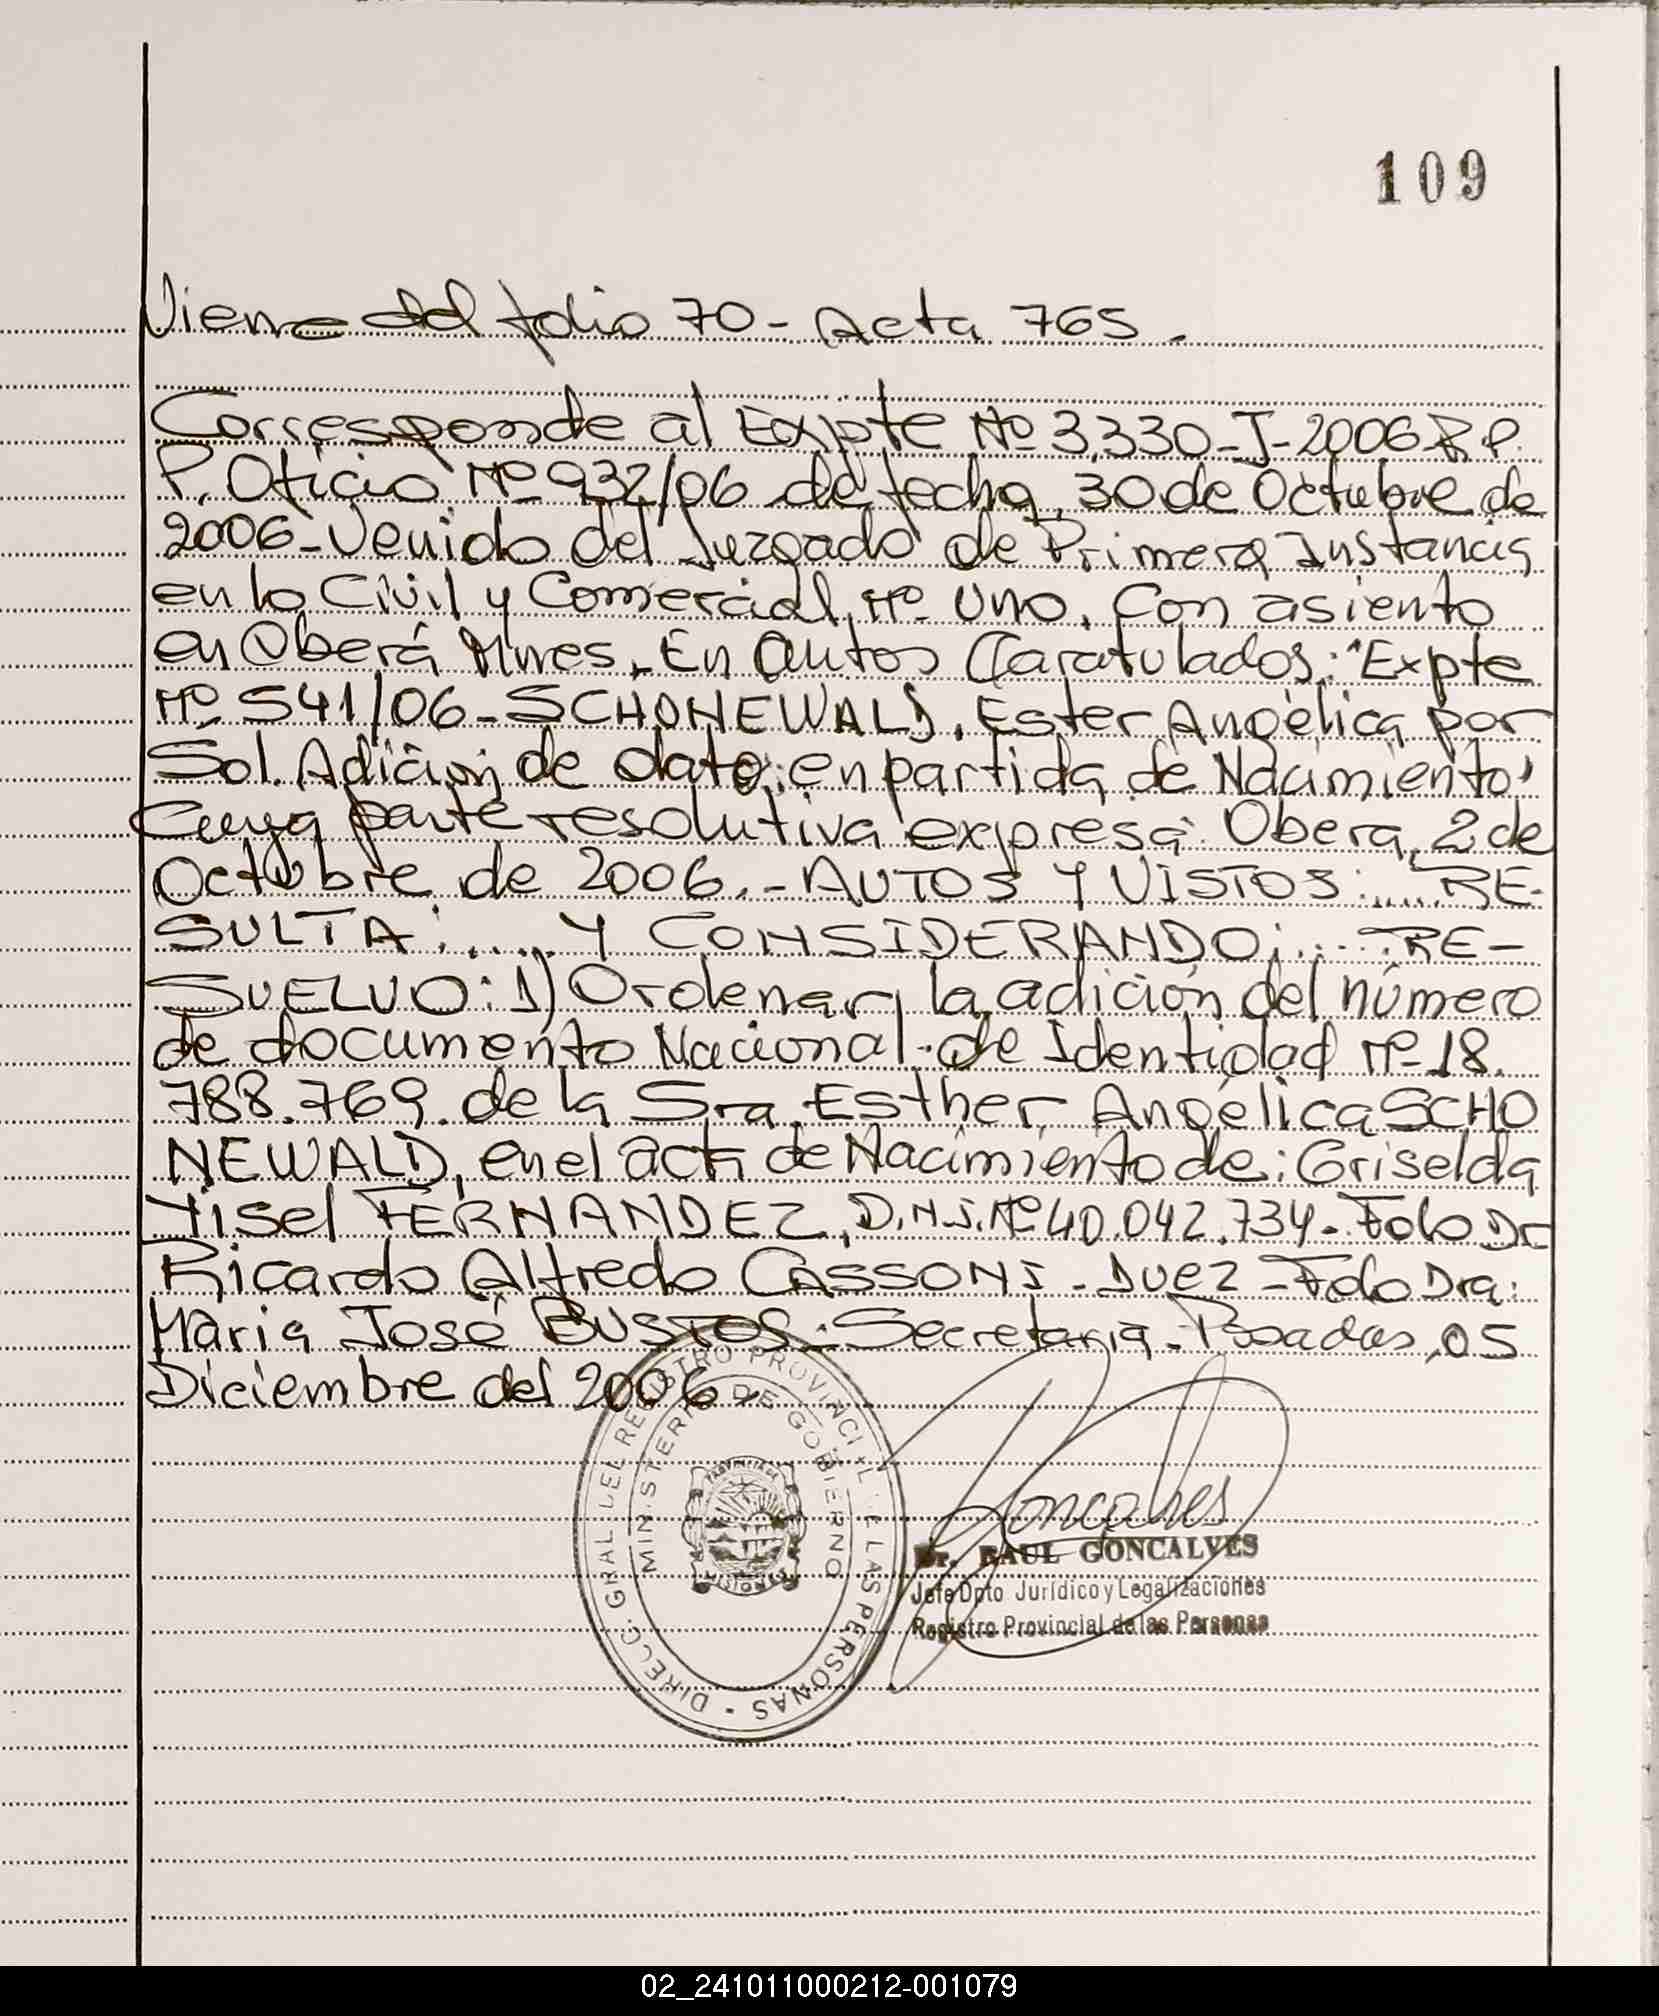 109
Viene del folio 70 - Acta 765.
Corresponde al Expte Nº 3.330-J-2006-R.P.
P. Oficio Nº 932/06 de fecha, 30 de Octubre de
2006-Venido del Juzgado de Primera Instancia
en lo Civil y Comercial, Nº Uno, Con asiento
en Oberá Mnes. En Autos Caratulados: "Expte
Nº 541/06-SCHONEWALD, Ester Angélica por
Sol. Adición de dato en partida de Nacimiento"
Cuya parte resolutiva expresa: Obera, 2 de
Octubre de 2006.- AUTOS Y VISTOS:..... RE-
SULTA:..... Y CONSIDERANDO:..... RE-
SUELVO: 1) Ordenar, la adición del número
de documento Nacional de Identidad Nº 18.
788.769. de la Sra. Esther Angélica SCHO
NEWALD, en el acta de Nacimiento de: Griselda
Yisel FERNANDEZ, D.N.I. Nº 40.042.734- Fdo Dr
Ricardo Alfredo CASSONI - Juez - Fdo Dra:
Maria José BUSTOS - Secretaria - Posadas, 05
Diciembre del 2006.-
DIRECC. GRAL DEL REGISTRO PROVINCIAL DE LAS PERSONAS
MINISTERIO DE GOBIERNO
PROVINCIA DE
MISIONES
Goncalves
Dr. RAUL GONCALVES
Jefe Dpto Jurídico y Legalizaciones
Registro Provincial de las Personas
02_241011000212-001079